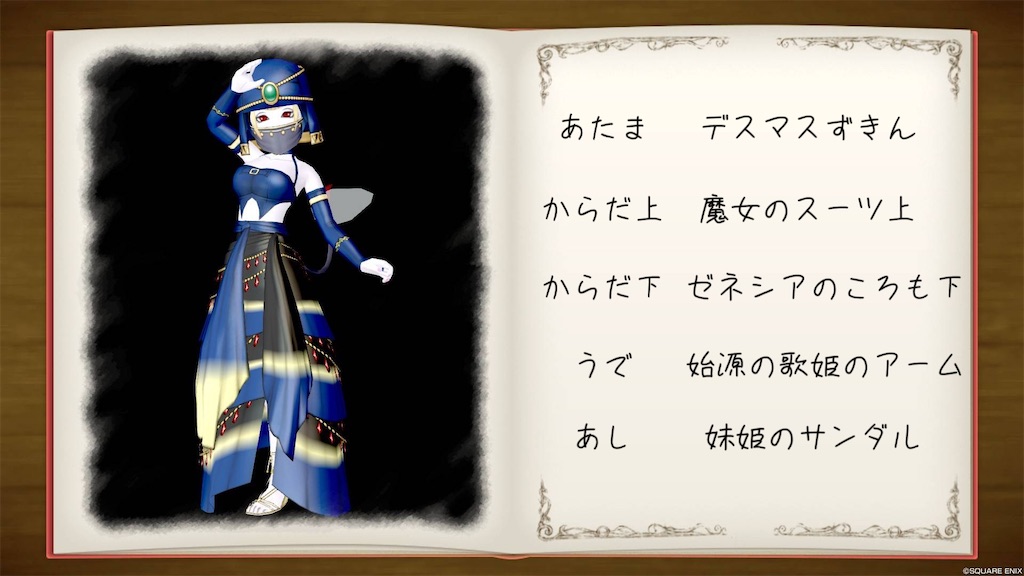 あたま デスマスずきん
からだ上 魔女のスーツ上
からだ下 ゼネシアのころも下
うで 始源の歌姫のアーム
あし 妹姫のサンダル
©SQUARE ENIX